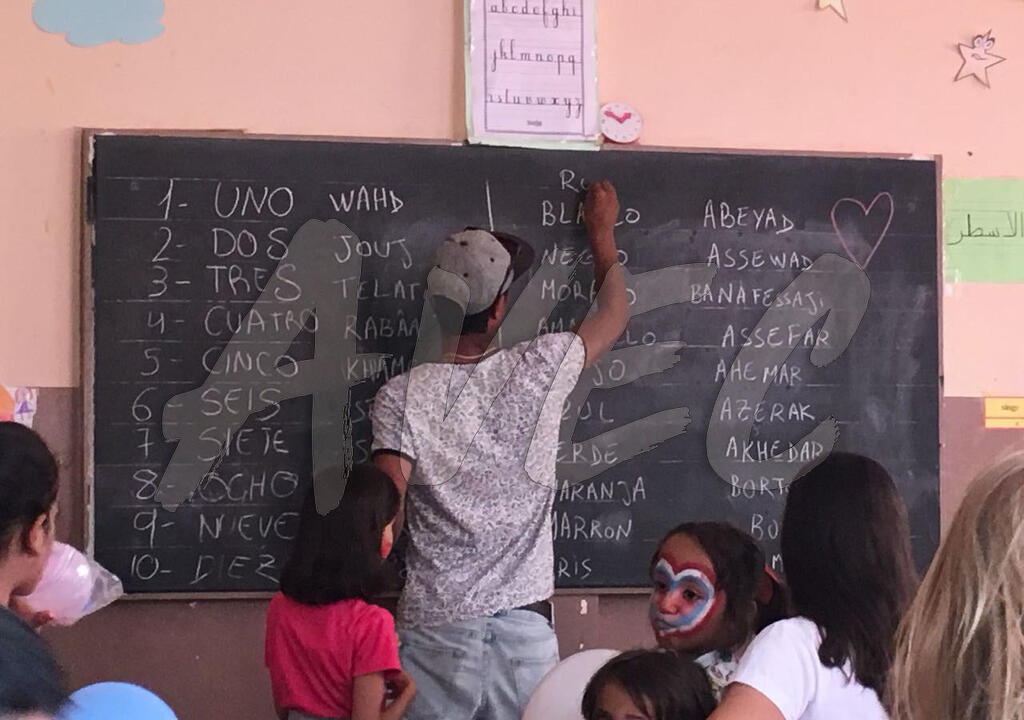 abcdefghi
jklmnopq
rstuvwxyz
R
1- UNO WAHD
2- DOS JOUJ
3- TRES TELAT
4- CUATRO RABÂA
5- CINCO KHAM
6- SEIS
7- SIETE
8- OCHO
9- NUEVE
10- DIEZ
ABEYAD
ASSEWAD
BANAFESSAJI
ASSEFAR
AHEMAR
AZERAK
ERDE AKHEDAR
ARANJA BORT
MARRON BO
RIS M
الاسطر
AVEC